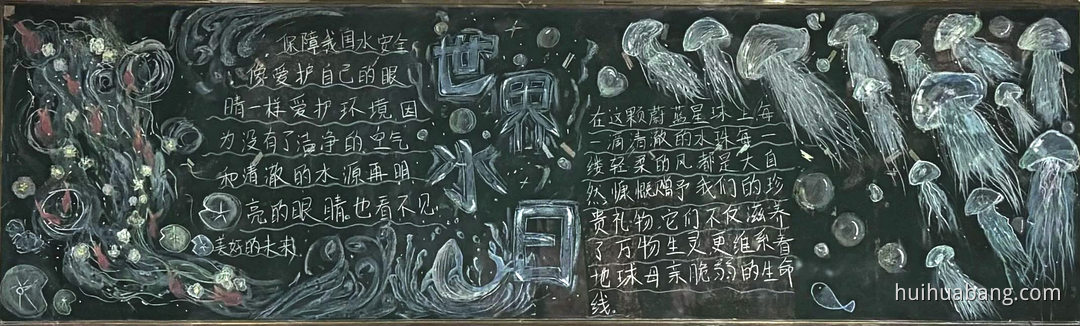 保障我国水安全
像爱护自己的眼
睛一样爱护环境因
为没有了洁净的空气
和清澈的水源再明
亮的眼睛也看不见
美好的未来
世界水日
在这颗蔚蓝星球上每
一滴清澈的水珠每一
缕轻柔的风都是大自
然慷慨赠予我们的珍
贵礼物它们不仅滋养
了万物生灵更维系着
地球母亲脆弱的生命
线.
huihuabang.com